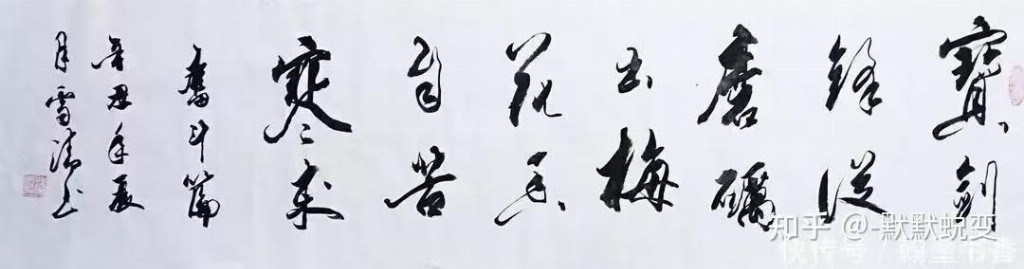 寶劍
鋒從
磨礪
出梅
花香
自苦
寒来
奮斗篇
辛丑年夏
月雪清书
知乎 @-默默蜕变
快传号 / 翰墨书香